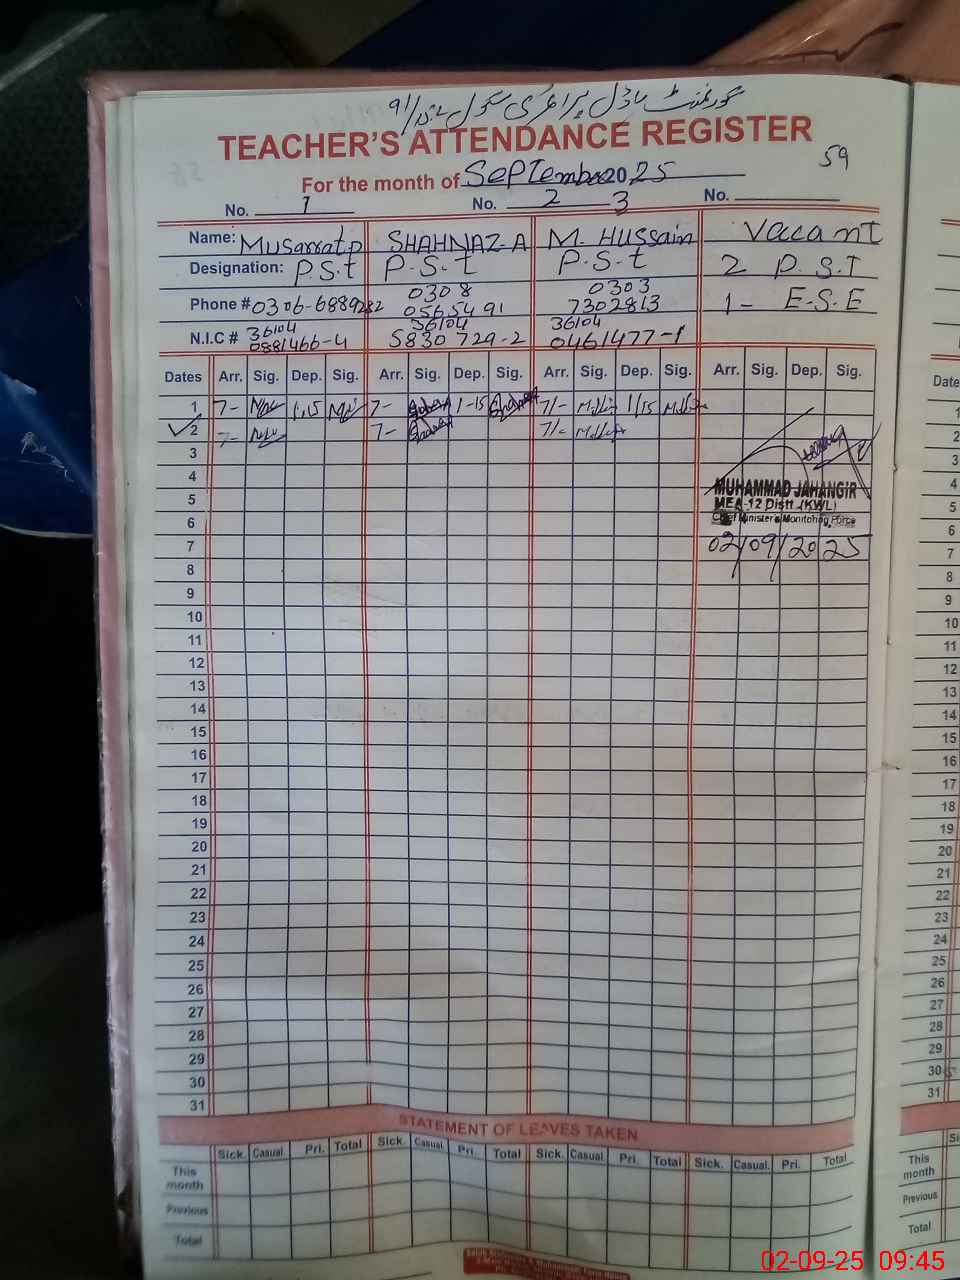 گورنمنٹ ماڈل پرائمری سکول 91/
TEACHER'S ATTENDANCE REGISTER
59
For the month of September 2025
No. 1 No. 2 3 No.
Name: Musarrat P SHAHNAZ-A M. Hussain Vacant
Designation: P.S.t P.S.t P.S.t 2 P.S.T
Phone # 0306-6889282 0308 0565491 0303 7302813 1- E.S.E
N.I.C # 36104 0881466-4 36104 5830729-2 36104 0461477-1
Dates Arr. Sig. Dep. Sig. Arr. Sig. Dep. Sig. Arr. Sig. Dep. Sig. Arr. Sig. Dep. Sig.
1 7- 1.15 7- 1-15 7/- 1/15
2 7- 7- 7/-
3
4
5
6
7
8
9
10
11
12
13
14
15
16
17
18
19
20
21
22
23
24
25
26
27
28
29
30
31
MUHAMMAD JAHANGIR
MEA-12 Distt .(KWL)
Chief Minister's Monitoring Force
02/09/2025
STATEMENT OF LEAVES TAKEN
Sick. Casual. Pri. Total Sick. Casual. Pri. Total Sick. Casual. Pri. Total Sick. Casual. Pri. Total
This month
Previous
Total
Date
1
2
3
4
5
6
7
8
9
10
11
12
13
14
15
16
17
18
19
20
21
22
23
24
25
26
27
28
29
30
31
Si
This month
Previous
Total
02-09-25 09:45